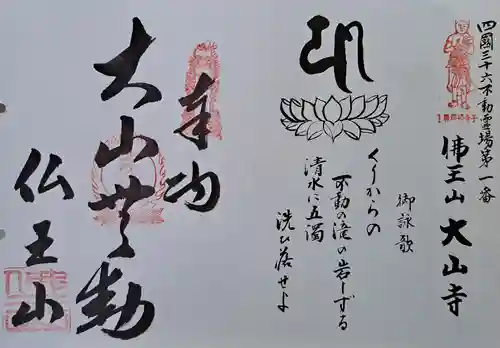 四國三十六不動霊場第一番
佛王山 大山寺
御詠歌
くりからの
不動の滝の岩しずる
清水に五濁
洗ひ落せよ
奉納
大山
動
仏王山